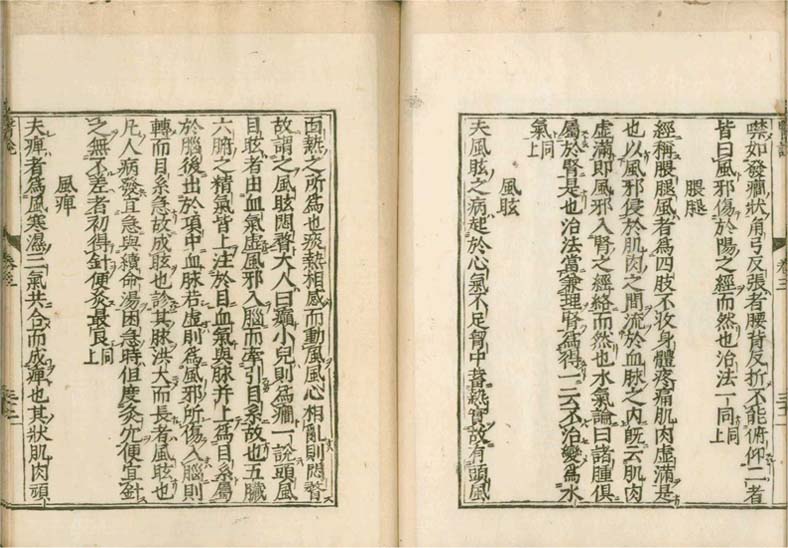 噤如發癎狀角弓反張者腰背反折不能俯仰二者
皆曰風邪傷於陽之經而然也治法一同同上
腲腿
經稱腲腿風者爲四肢不收身體疼痛肌肉虛滿是
也以風邪侵於肌肉之間流於血脉之内旣云肌肉
虛滿即風邪入腎之經絡而然也水氣論曰諸腫俱
屬於腎是也治法當兼理腎爲得一云不治變爲水
氣同上
風眩
夫風眩之病起於心氣不足胷中蓄熱實故有頭風
面熱之所爲也痰熱相感而動風風心相亂則悶瞀
故謂之風眩悶瞀大人曰癲小兒則爲癎一說頭風
目眩者由血氣虛風邪入腦而牽引目系故也五臟
六腑之精氣皆上注於目血氣與脉并上爲目系屬
於腦後出於項中血脉若虛則爲風邪所傷入腦則
轉而目系急故成眩也診其脉洪大而長者風眩也
凡人病發宜急與續命湯困急時但度灸穴便宜針
之無不差者初得針便灸最良同上
風痺
夫痺者爲風寒濕三氣共合而成痺也其狀肌肉頑
卷三